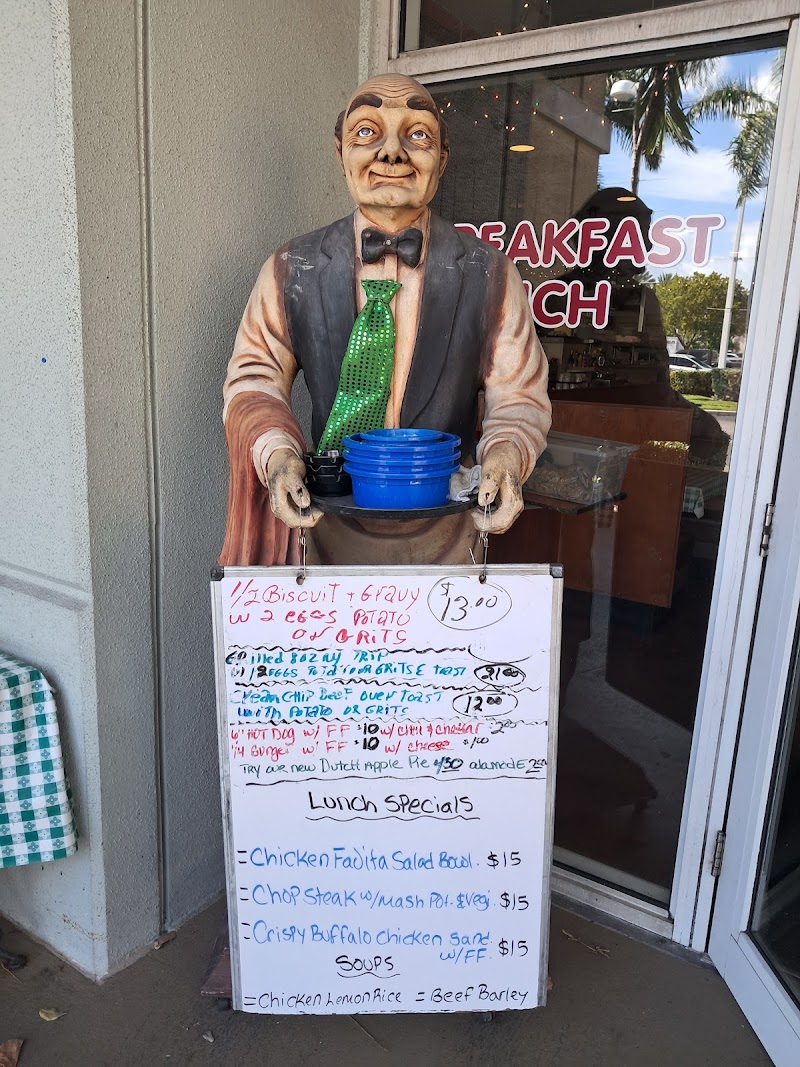 BREAKFAST
NCH
1/2 Biscuit + Gravy $13.00
w 2 eGGS POTATO
or GRiTS
Grilled 8oz NY TRIP
w/ 2 EGGS Potato or GRiTS & toast 21.00
Cream CHip BeeF over Toast 12.00
with Potato OR GRiTS
HOT DOG w/ FF $10 w/ CHili & CHeddar 2.00
1/4 Burger w/ FF $10 w/ cheese $1.00
TRY our new Dutch Apple Pie 4.50 alamodE
Lunch Specials
= Chicken Fajita Salad Bowl. $15
= Chop Steak w/ Mash Pot. & Vegi. $15
= Crispy Buffalo Chicken Sand $15
w/ FF
Soups
= Chicken Lemon Rice = Beef Barley